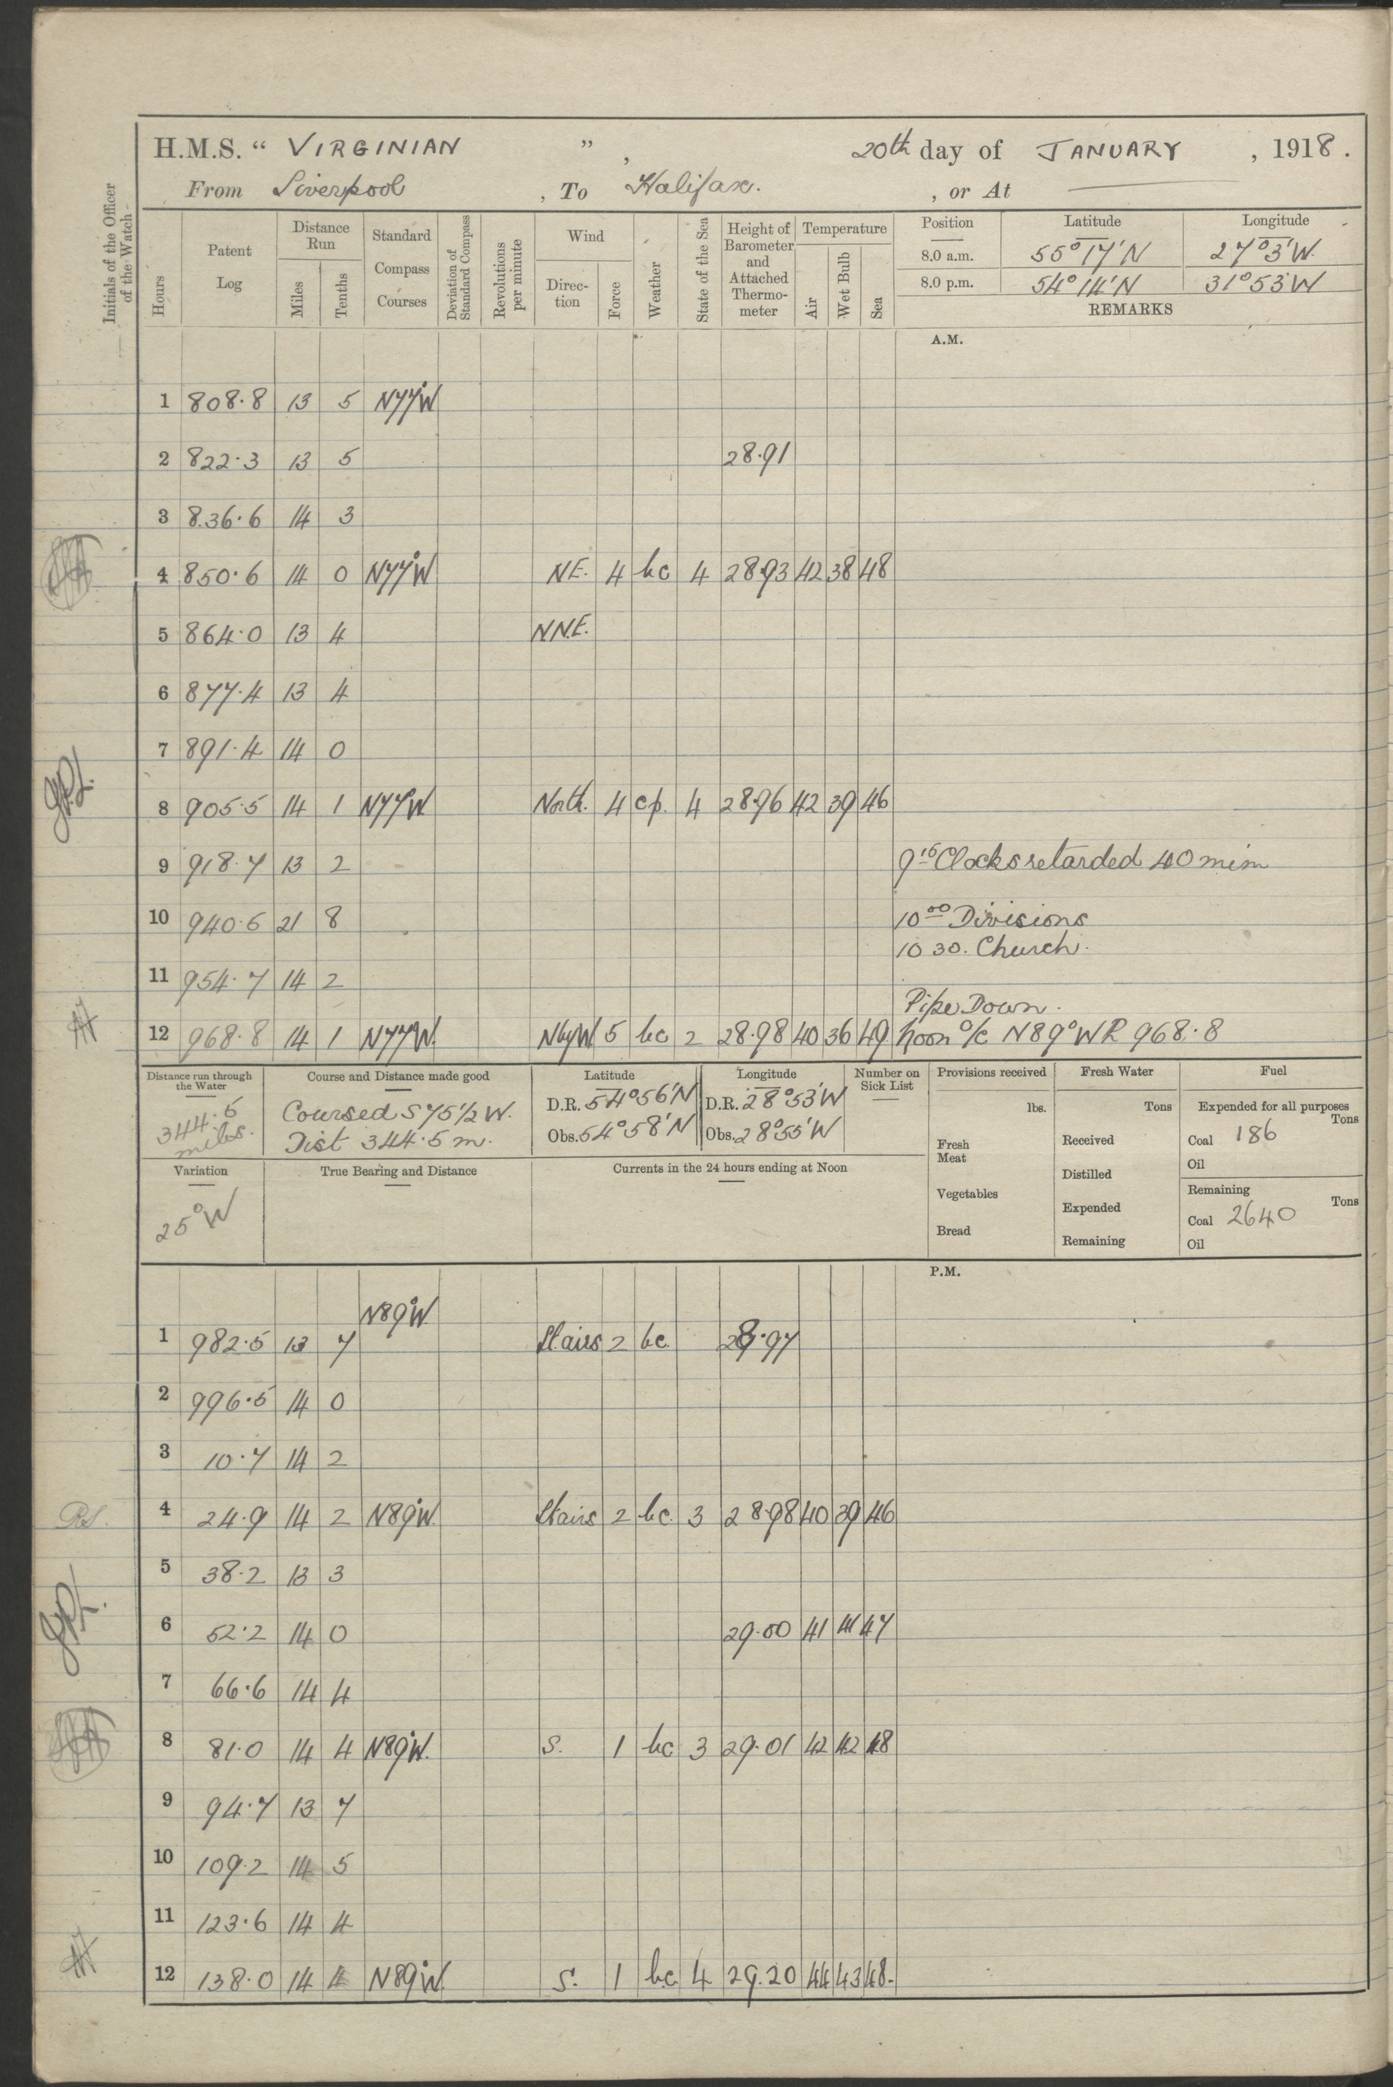 H.M.S. “ VIRGINIAN ” , 20th day of JANUARY , 1918.
From Liverpool , To Halifax. , or At
Initials of the Officer of the Watch
Hours
Patent Log
Distance Run
Miles
Tenths
Standard Compass Courses
Deviation of Standard Compass
Revolutions per minute
Wind
Direction
Force
Weather
State of the Sea
Height of Barometer and Attached Thermometer
Temperature
Air
Wet Bulb
Sea
Position Latitude Longitude
8.0 a.m. 55° 17' N 27° 3' W.
8.0 p.m. 54° 14' N 31° 53' W
REMARKS
A.M.
1 808.8 13 5 N77°W
2 822.3 13 5 28.91
3 836.6 14 3
4 850.6 14 0 N77°W NE. 4 bc 4 28.93 42 38 48
5 864.0 13 4 NNE.
6 877.4 13 4
7 891.4 14 0
8 905.5 14 1 N77°W North. 4 cp. 4 28.96 42 39 46
9 918.7 13 2 9 15 Clocks retarded 40 mim
10 940.5 21 8 10 00 Divisions
10 30. Church.
11 954.7 14 2
Pipe Down.
12 968.8 14 1 N77°W. NbyW 5 bc 2 28.98 40 36 49 Noon a/c N89°W R 968.8
Distance run through the Water
344.5 miles.
Course and Distance made good
Coursed S 75 1/2 W.
Dist 344.5 m.
Latitude
D.R. 54° 56' N
Obs. 54° 58' N
Longitude
D.R. 28° 53' W
Obs. 28° 55' W
Number on Sick List
Provisions received
lbs.
Fresh Meat
Vegetables
Bread
Fresh Water
Tons
Received
Distilled
Expended
Remaining
Fuel
Expended for all purposes
Tons
Coal 186
Oil
Remaining
Tons
Coal 2640
Oil
Variation
25° W
True Bearing and Distance
Currents in the 24 hours ending at Noon
P.M.
N89°W
1 982.5 13 7 Slairs 2 bc. 28.97
2 996.5 14 0
3 10.7 14 2
4 24.9 14 2 N89°W. Stairs 2 bc. 3 28.98 40 39 46
5 38.2 13 3
6 52.2 14 0 29.00 41 41 47
7 66.6 14 4
8 81.0 14 4 N89°W. S. 1 bc 3 29.01 42 42 48
9 94.7 13 7
10 109.2 14 5
11 123.6 14 4
12 138.0 14 4 N89°W. S. 1 bc 4 29.20 44 43 48.